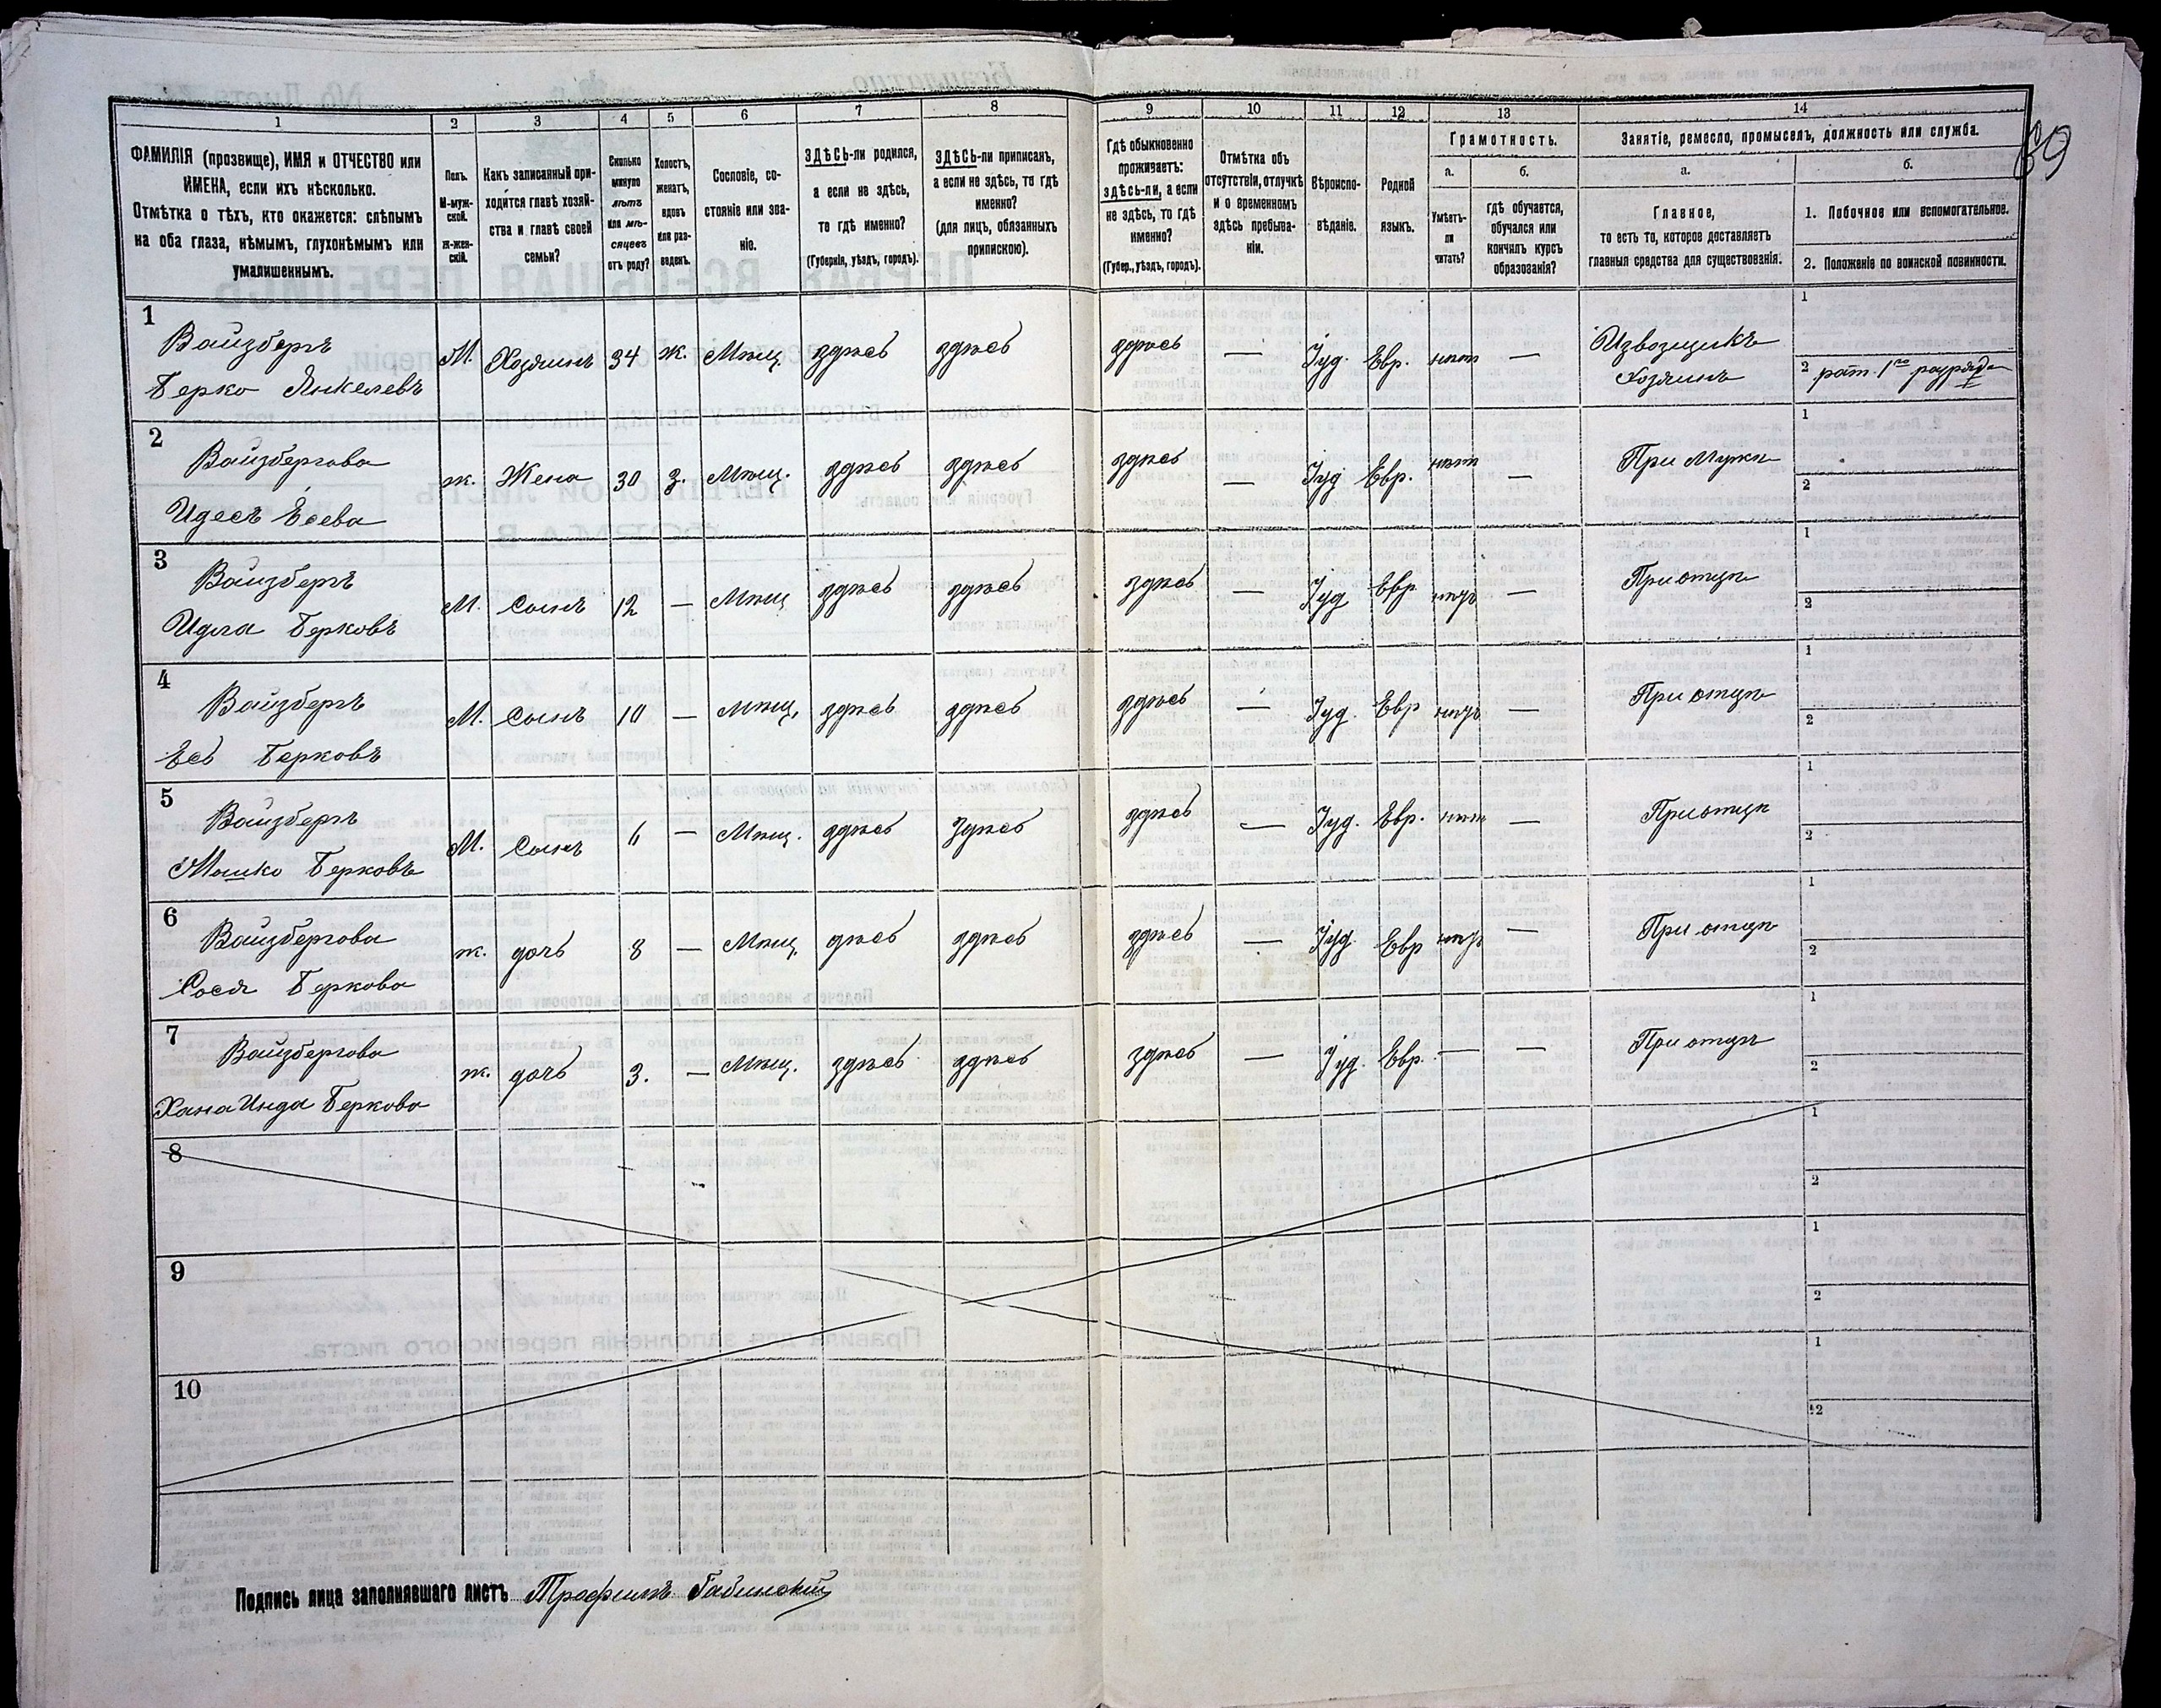 89
1 2 3 4 5 6 7 8 9 10 11 12 13 14
ФАМИЛІЯ (прозвище), ИМЯ и ОТЧЕСТВО или
ИМЕНА, если ихъ нѣсколько.
Отмѣтка о тѣхъ, кто окажется: слѣпымъ
на оба глаза, нѣмымъ, глухонѣмымъ или
умалишеннымъ.
Полъ.
М-муж-
ской.
Ж-жен-
скій.
Какъ записанный при-
ходится главѣ хозяй-
ства и главѣ своей
семьи?
Сколько
минуло
лѣтъ
или мѣ-
сяцевъ
отъ роду?
Холостъ,
женатъ,
вдовъ
или раз-
веденъ.
Сословіе, со-
стояніе или зва-
ніе.
ЗДѢСЬ-ли родился,
а если не здѣсь,
то гдѣ именно?
(Губернія, уѣздъ, городъ).
ЗДѢСЬ-ли приписанъ,
а если не здѣсь, то гдѣ
именно?
(для лицъ, обязанныхъ
припискою).
Гдѣ обыкновенно
проживаетъ:
здѣсь-ли, а если
не здѣсь, то гдѣ
именно?
(Губер., уѣздъ, городъ).
Отмѣтка объ
отсутствіи, отлучкѣ
и о временномъ
здѣсь пребыва-
ніи.
Вѣроиспо-
вѣданіе.
Родной
языкъ.
Грамотность.
а.
Умѣетъ-
ли
читать?
б.
гдѣ обучается,
обучался или
кончилъ курсъ
образованія?
Занятіе, ремесло, промыселъ, должность или служба.
а.
Главное,
то есть то, которое доставляетъ
главныя средства для существованія.
б.
1. Побочное или вспомогательное.
2. Положеніе по воинской повинности.
1
Вайзбергъ
Берко Янкелевъ
М. Хозяинъ 34 ж. Мѣщ. здѣсь здѣсь здѣсь — Іуд. Евр. нѣт —
Извозщикъ
хозяинъ
1
2 рат. 1го разряда
2
Вайзбергова
Идесъ Есева
ж. Жена 30 З. Мѣщ. здѣсь здѣсь здѣсь — Іуд Евр. нѣт — При мужѣ
1
2
3
Вайзбергъ
Идла Берковъ
М. Сынъ 12 — Мѣщ здѣсь здѣсь здѣсь — Іуд Евр — При отцѣ
1
2
4
Вайзбергъ
Есь Берковъ
М. Сынъ 10 — Мѣщ. здѣсь здѣсь здѣсь — Іуд. Евр — При отцѣ
1
2
5
Вайзбергъ
Мошко Берковъ
М. Сынъ 6 — Мѣщ. здѣсь Здѣсь здѣсь — Іуд. Евр. нѣт — При отцѣ
1
2
6
Вайзбергова
Сося Беркова
ж. дочь 8 — Мѣщ. здѣсь здѣсь здѣсь — Іуд. Евр — При отцѣ
1
2
7
Вайзбергова
Хана Инда Беркова
ж. дочь 3. — Мѣщ. здѣсь здѣсь здѣсь — Іуд. Евр. — — При отцѣ
1
2
8
1
2
9
1
2
10
1
2
Подпись лица заполнявшаго листъ Трофимъ Габинскій